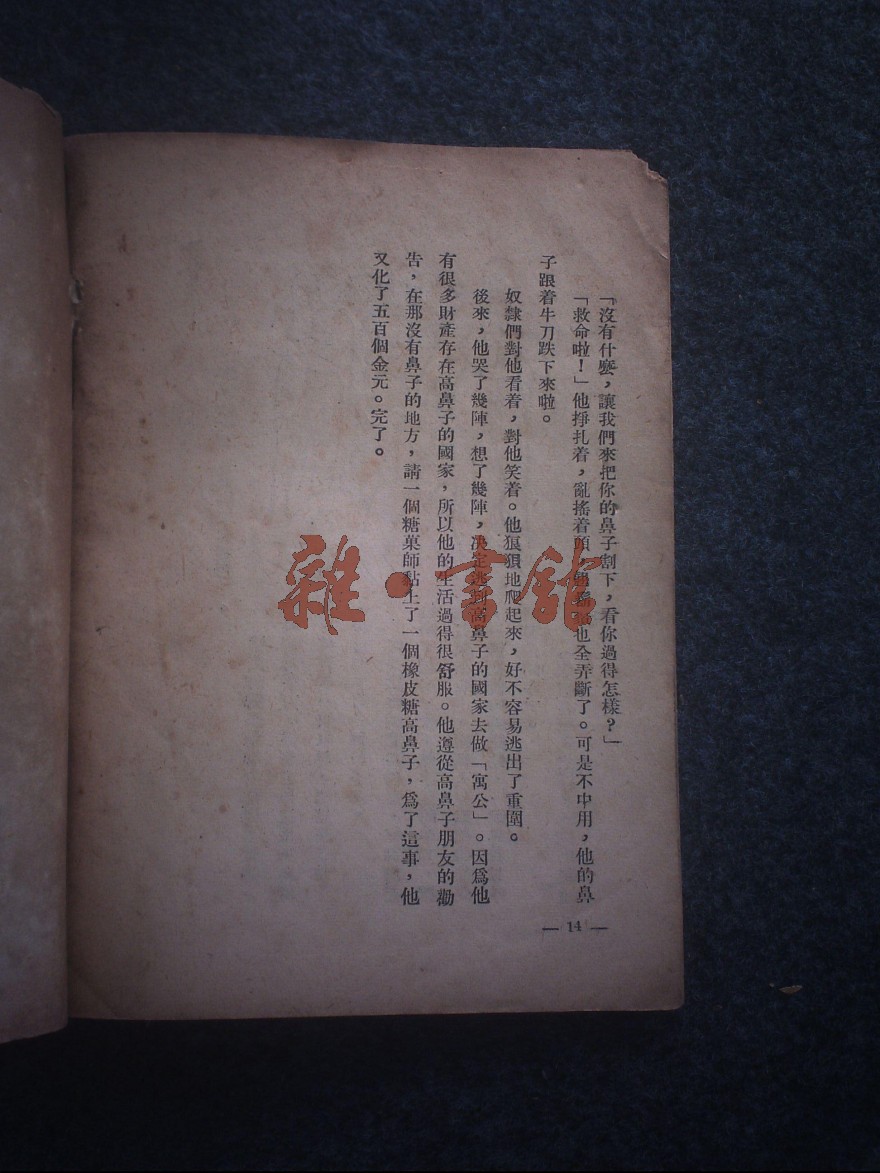 「沒有什麼，讓我們來把你的鼻子割下，看你過得怎樣？」
「救命啦！」他掙扎着，亂搖着頭，也全弄斷了。可是不中用，他的鼻
子跟着牛刀跌下來啦。
奴隸們對他看着，對他笑着。他狼狽地爬起來，好不容易逃出了重圍。
後來，他哭了幾陣，想了幾陣，决定逃到高鼻子的國家去做「寓公」。因爲他
有很多財產存在高鼻子的國家，所以他的生活過得很舒服。他遵從高鼻子朋友的勸
告，在那沒有鼻子的地方，請一個糖菓師黏上了一個橡皮糖高鼻子，爲了這事，他
又化了五百個金元。完了。
— 14 —
雜·書館